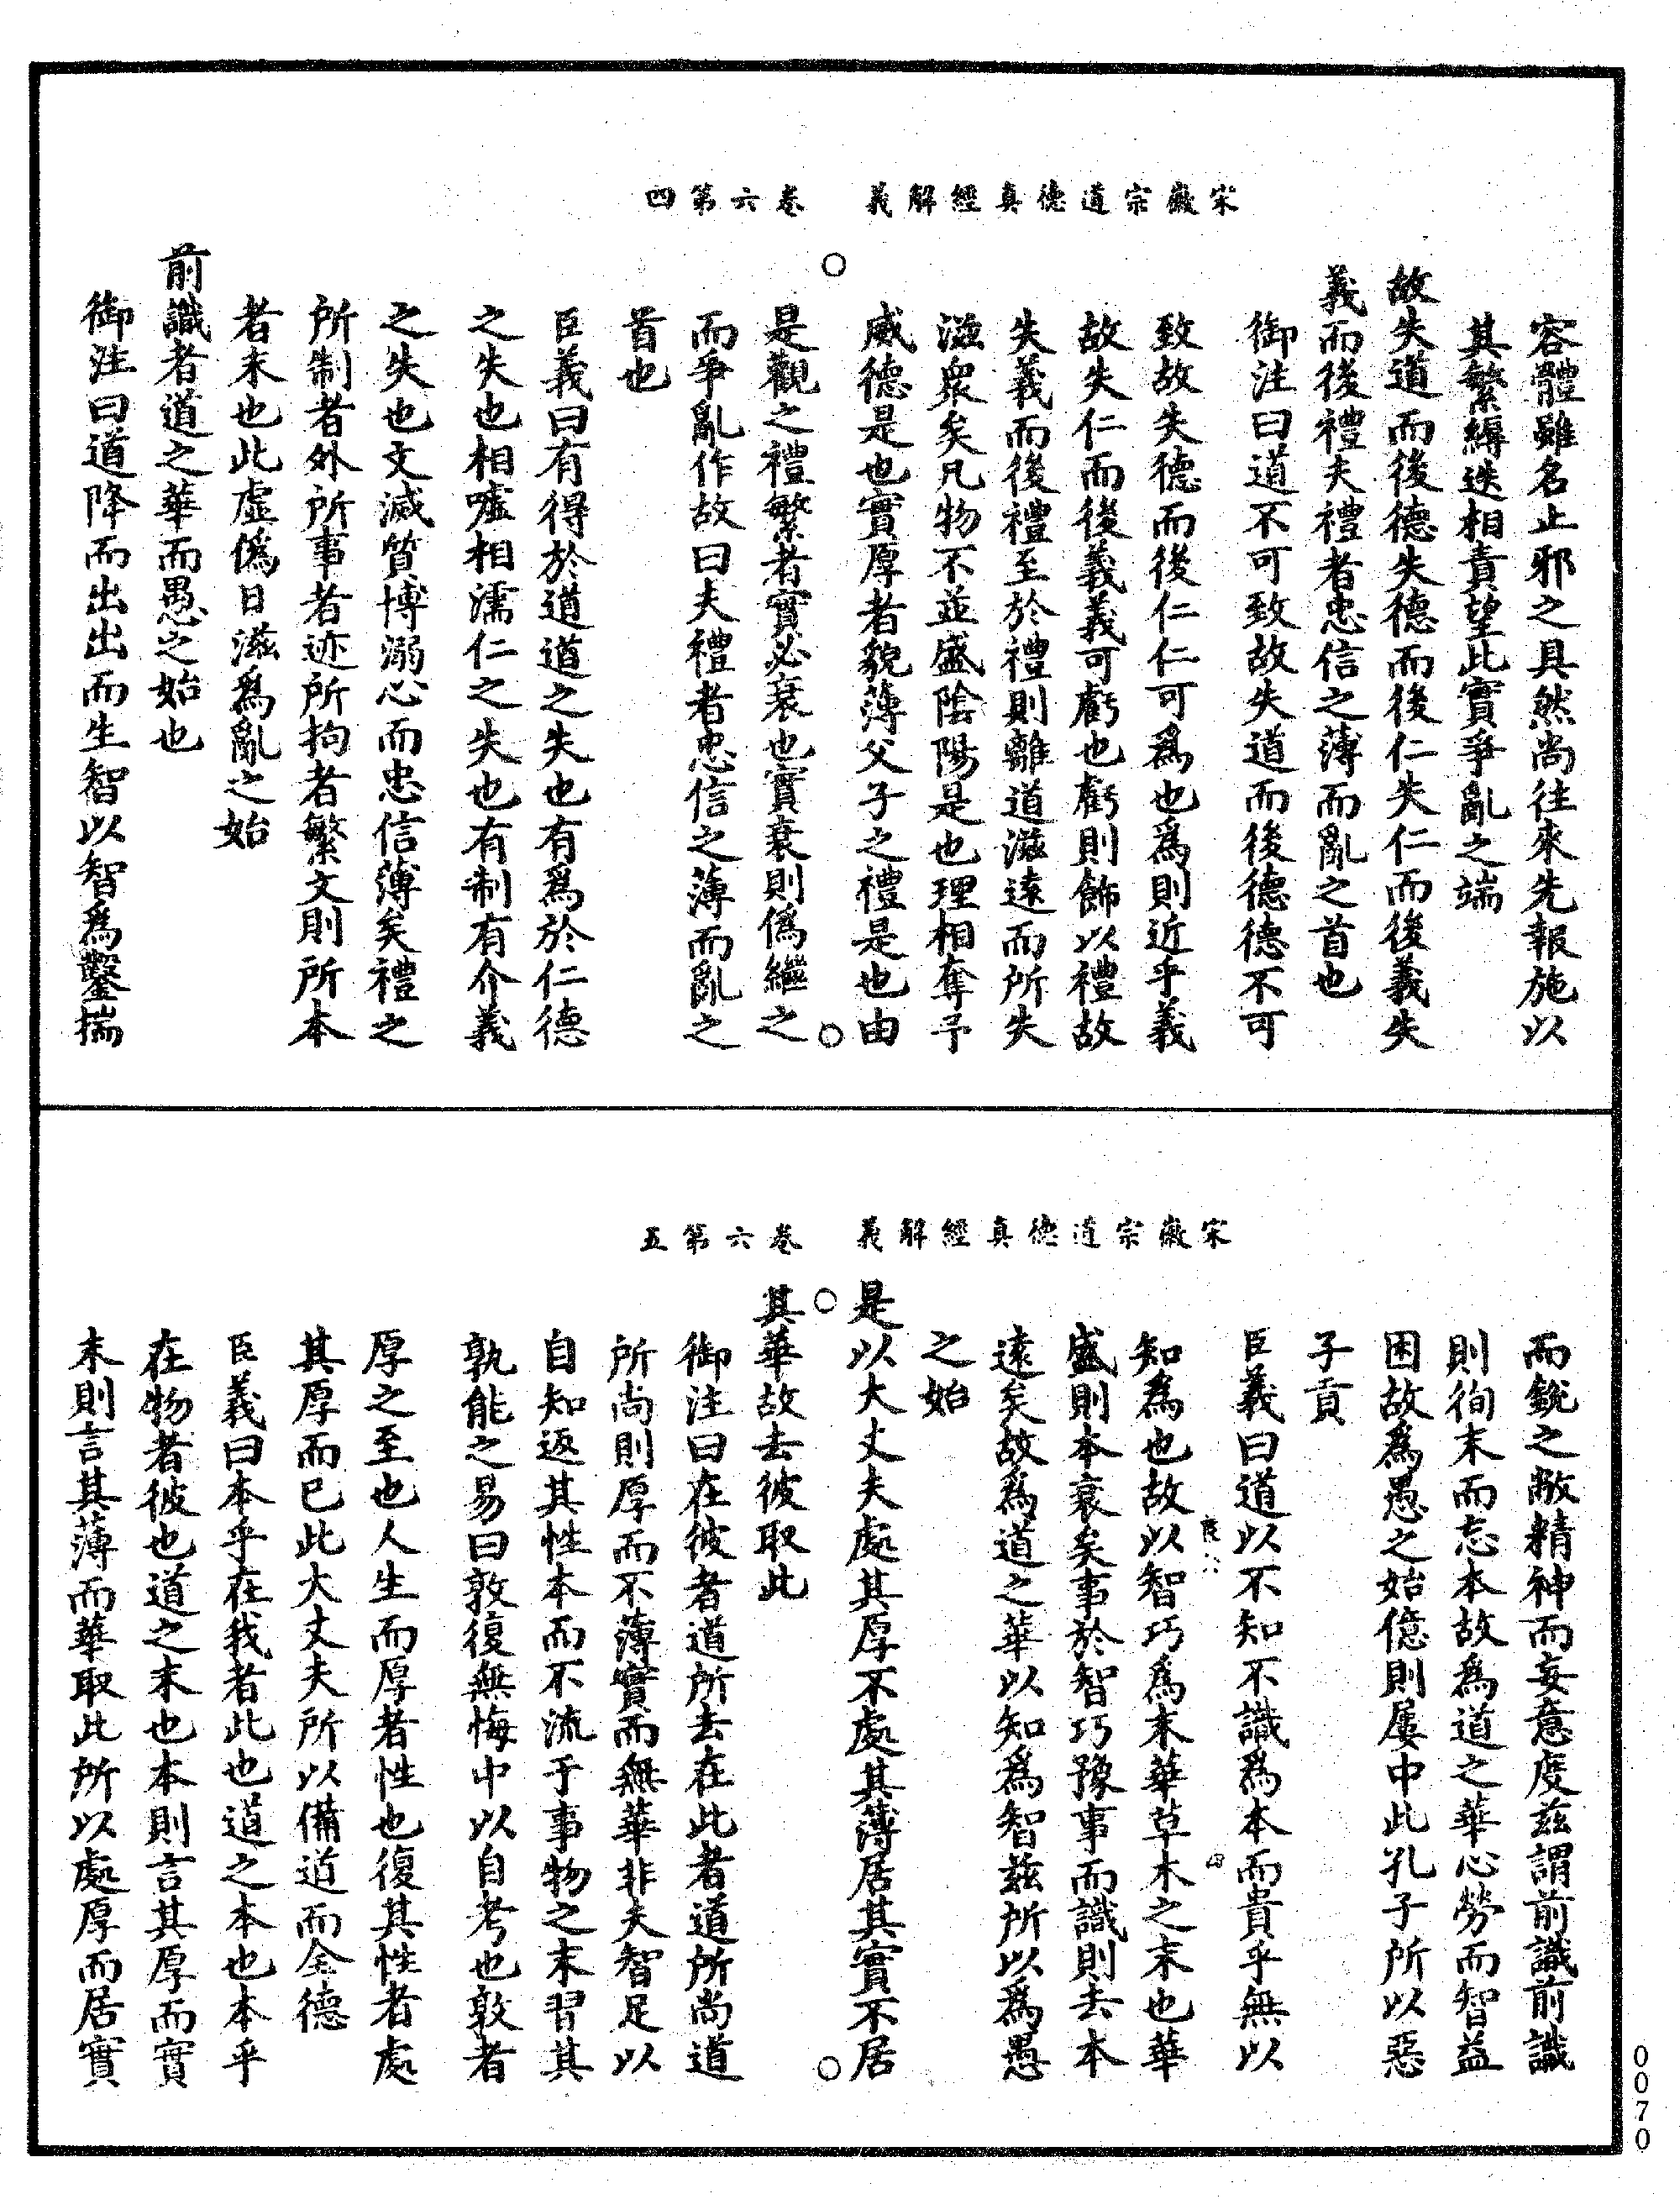 宋徽宗道德真經解義　卷六第四
容體雖名止邪之具然尚往來先報施以
其繁縟迭相責望此實爭亂之端
故失道而後德失德而後仁失仁而後義失
義而後禮夫禮者忠信之薄而亂之首也
御注曰道不可致故失道而後德德不可
致故失德而後仁仁可爲也爲則近乎義
故失仁而後義義可虧也虧則飾以禮故
失義而後禮至於禮則離道滋遠而所失
滋衆矣凡物不並盛陰陽是也理相奪予
威德是也實厚者貌薄父子之禮是也由
是觀之禮繁者實必衰也實衰則僞繼之
而爭亂作故曰夫禮者忠信之薄而亂之
首也
臣義曰有得於道道之失也有爲於仁德
之失也相噓相濡仁之失也有制有介義
之失也文滅質博溺心而忠信薄矣禮之
所制者外所事者迹所拘者繁文則所本
者末也此虛僞日滋爲亂之始
前識者道之華而愚之始也
御注曰道降而出出而生智以智爲鑿揣
宋徽宗道德真經解義　卷六第五
而銳之敝精神而妄意度茲謂前識前識
則徇末而忘本故爲道之華心勞而智益
困故爲愚之始億則屢中此孔子所以惡
子貢
臣義曰道以不知不識爲本而貴乎無以
知爲也故以智巧爲末華草木之末也華
盛則本衰矣事於智巧豫事而識則去本
遠矣故爲道之華以知爲智茲所以爲愚
之始
是以大丈夫處其厚不處其薄居其實不居
其華故去彼取此
御注曰在彼者道所去在此者道所尚道
所尚則厚而不薄實而無華非夫智足以
自知返其性本而不流于事物之末習其
孰能之易曰敦復無悔中以自考也敦者
厚之至也人生而厚者性也復其性者處
其厚而已此大丈夫所以備道而全德
臣義曰本乎在我者此也道之本也本乎
在物者彼也道之末也本則言其厚而實
末則言其薄而華取此所以處厚而居實
0070